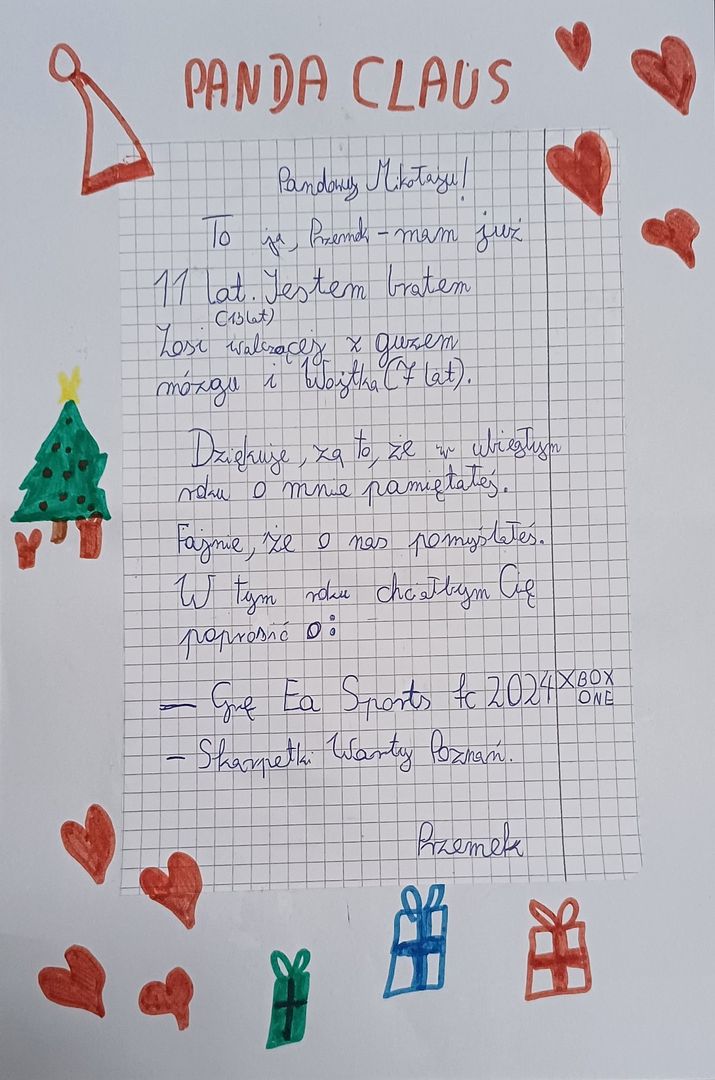 PANDA CLAUS
Pandowy Mikołaju!
To ja, Przemek - mam już
11 lat. Jestem bratem
(13 lat)
Zosi walczącej z guzem
mózgu i Wojtka (7 lat).
Dziękuje, za to, że w ubiegłym
roku o mnie pamiętałeś.
Fajnie, że o nas pomyślałeś.
W tym roku chciałbym Cię
poprosić o:
- Grę Ea Sports fc 2024 XBOX ONE
- Skarpetki Warty Poznań.
Przemek